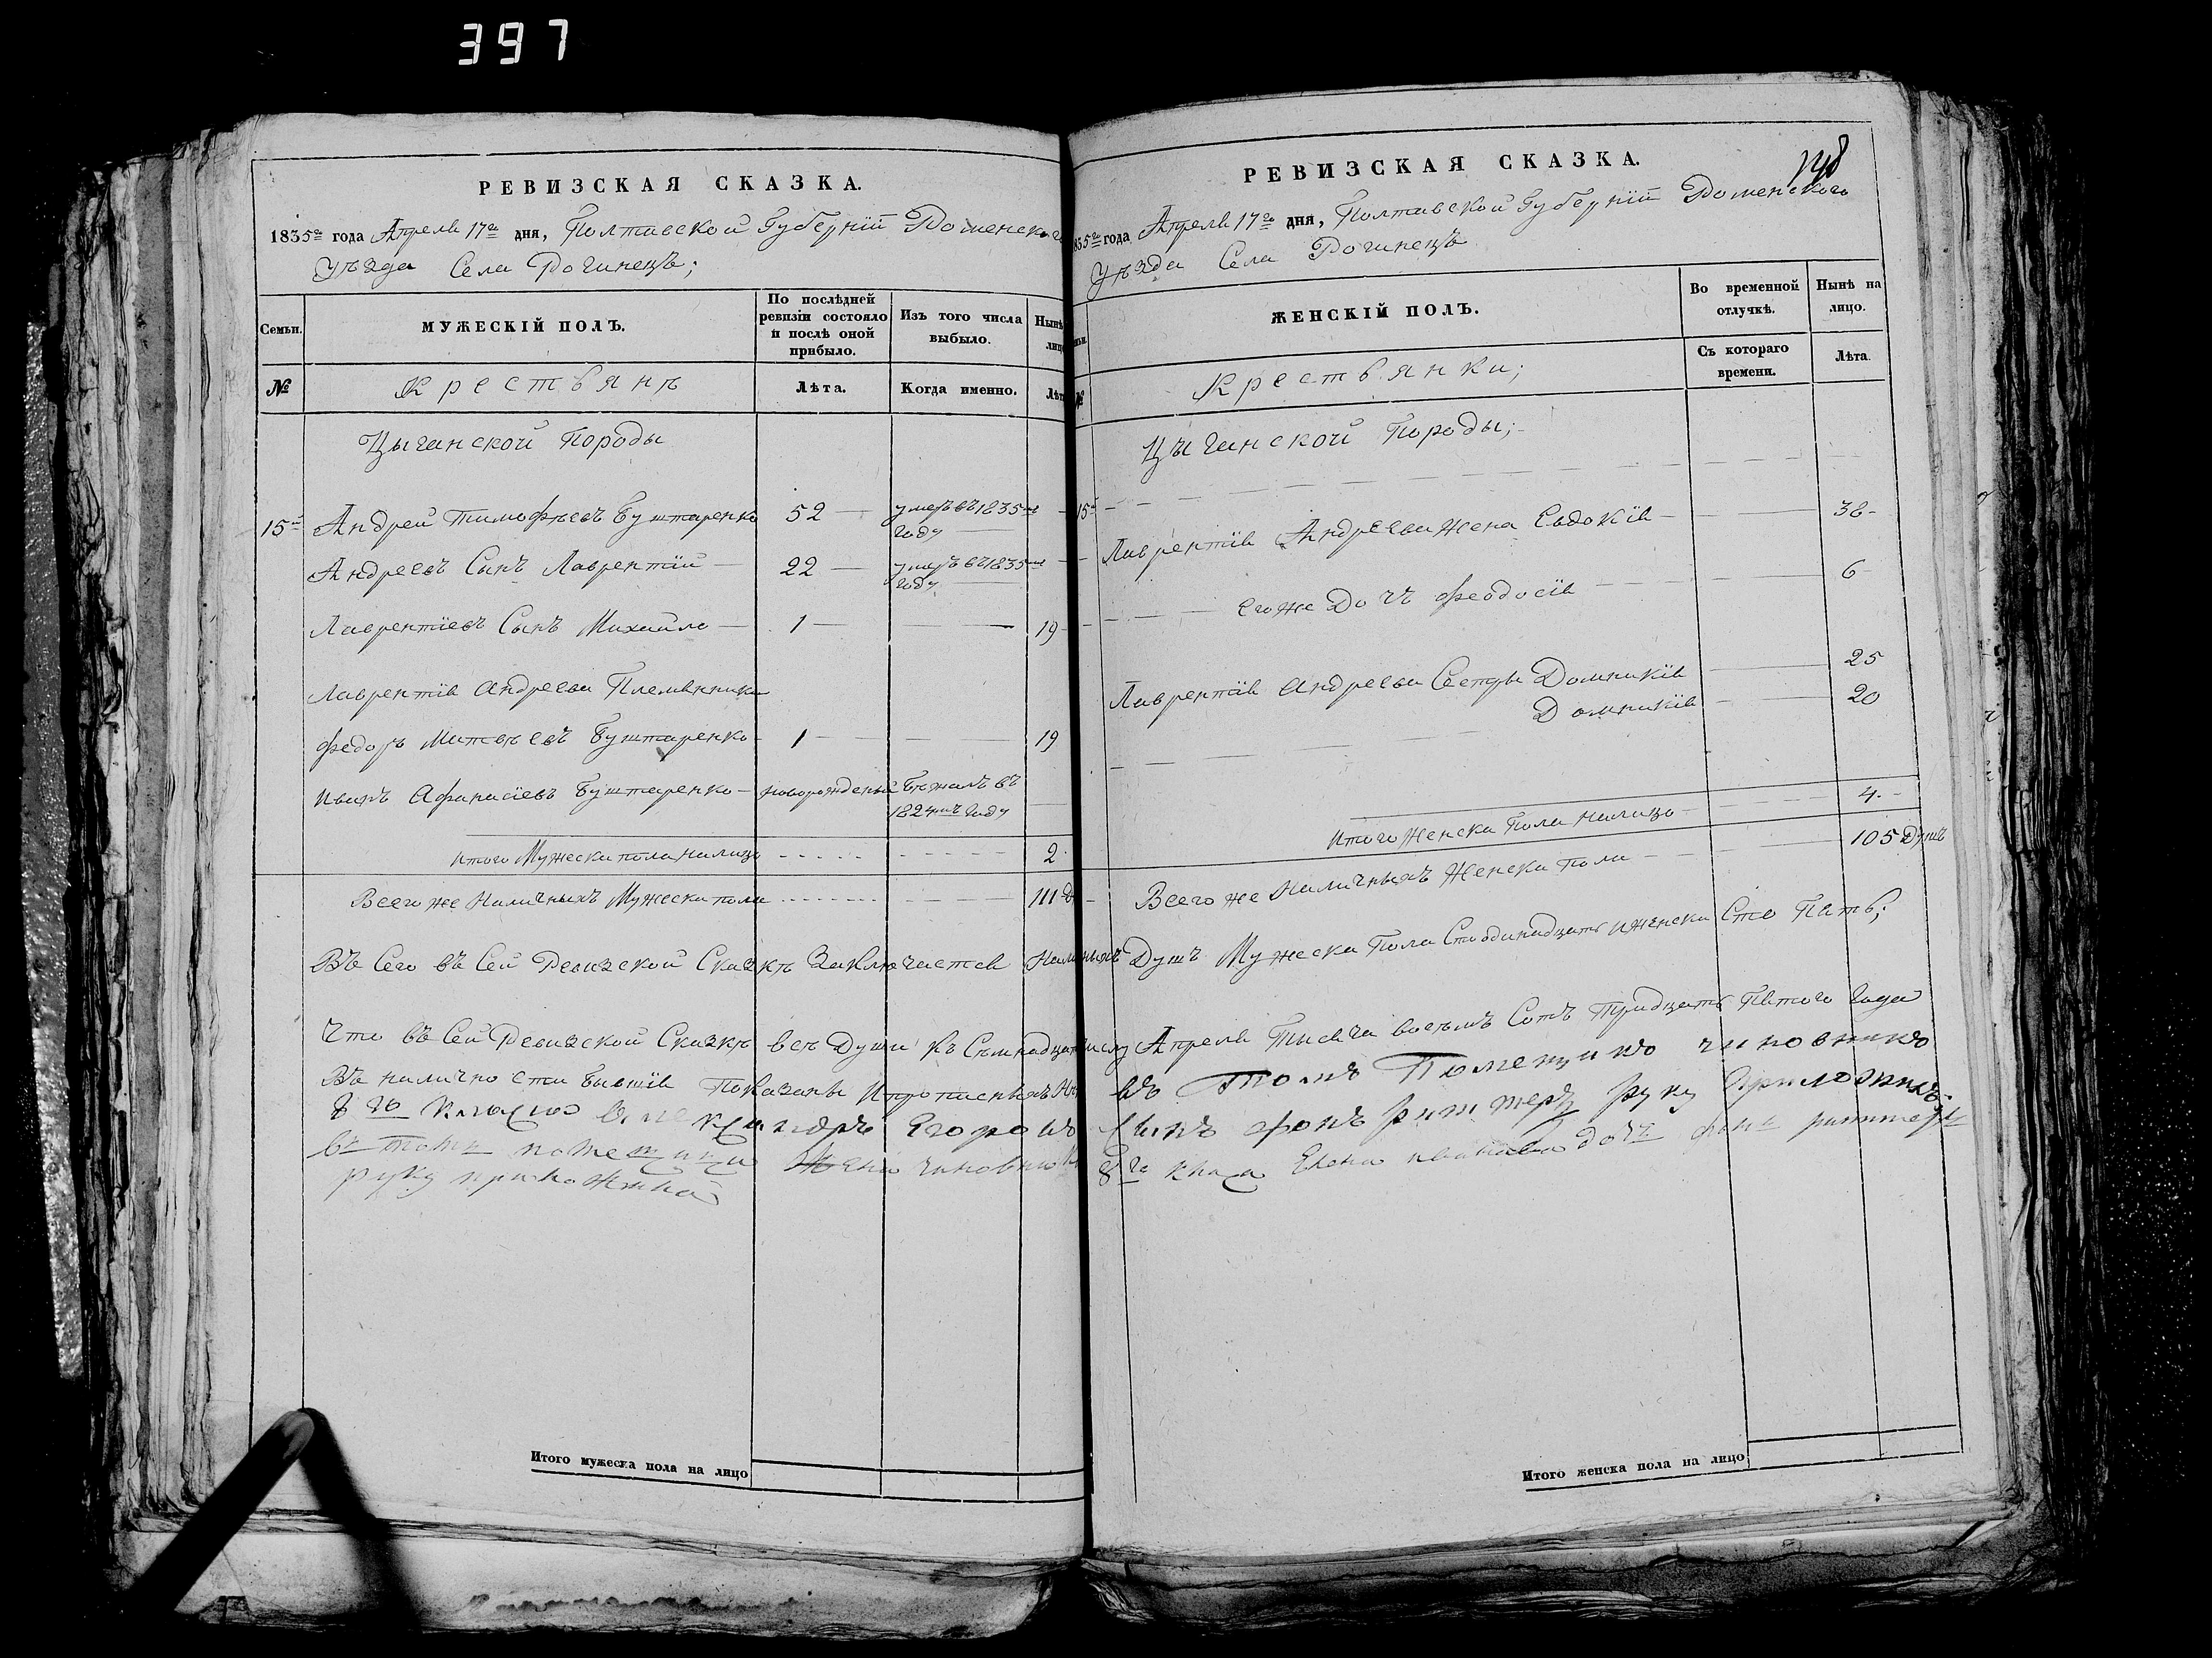 397
РЕВИЗСКАЯ СКАЗКА.
1835го года Апреля 17го дня, Полтавской Губернїи Роменского
Уѣзда Села Рогинецъ;
Семьи.
МУЖЕСКІЙ ПОЛЪ.
По послѣдней ревизіи состояло и послѣ оной прибыло.
Изъ того числа выбыло.
Нынѣ
лицо
№
Крестьянѣ
Лѣта.
Когда именно.
Лѣт
Цыганской Породы
15й Андрей Тимофѣевъ Буштаренко 52 умеръ въ 1835мъ году
Андреевъ Сынъ Лаврентїй 22 умеръ въ 1835мъ году
Лаврентїевъ Сынъ Михайло 1 19
Лаврентїя Андреева Племянники
Федоръ Матвѣевъ Буштаренко 1 19
Иванъ Афанасїевъ Буштаренко новорожденый Бѣжалъ въ 1824мъ году
Итого Мужеска пола налицо 2
Всего же Наличныхъ Мужеска пола 111 д
РЕВИЗСКАЯ СКАЗКА.
835го года Апреля 17го дня, Полтавской Губернїи Роменского
Уѣзда Села Рогинецъ
ЖЕНСКІЙ ПОЛЪ.
Во временной отлучкѣ.
Нынѣ на лицо.
№
Крестьянки;
Съ котораго времени.
Лѣта.
Цыганской Породы;
15й
Лаврентїя Андреева жена Евдокїя 38
Его же Дочъ Феодосїя 6
Лаврентїя Андреева Сестры Домникїя 25
Домникїя 20
Итого Женска Пола налицо 4
Всего же Наличныхъ Женска пола 105 Душъ
Въ Сего въ Сей Ревизской Сказкѣ Заключается Наличныхъ Душъ Мужеска Пола Сто одинадцать и женска Сто Пять;
Что въ Сей Ревизской Сказкѣ всѣ Души къ Семнадцат числу Апреля Тысяча восемъ Сотъ Тридцать Пятого Года
Въ наличности бывшїя Показаны и прописныхъ въ Томъ Помещикъ чиновникъ
8го класса Александръ Егоровъ Сынъ фонъ Риттеръ руку Приложилъ.
въ томъ помещица Жена чиновника 8го класа Елена иванова дочъ фонъ риттеръ
руку приложила
Итого мужеска пола на лицо
Итого женска пола на лицо